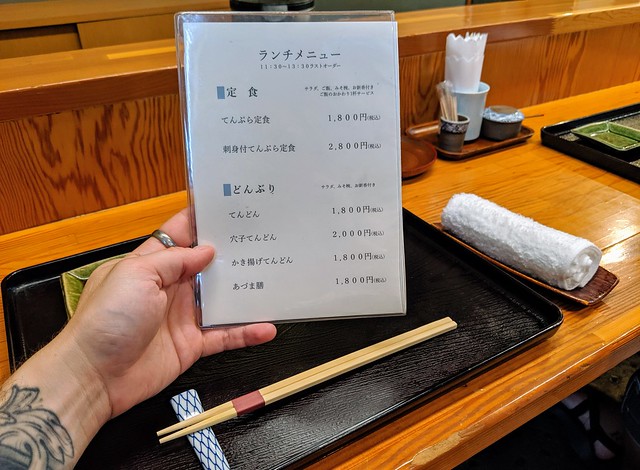 ランチメニュー
11:30~13:30ラストオーダー
定食
サラダ、ご飯、みそ椀、お新香付き
ご飯のおかわり1杯サービス
てんぷら定食 1,800円(税込)
刺身付てんぷら定食 2,800円(税込)
どんぶり
サラダ、みそ椀、お新香付き
てんどん 1,800円(税込)
穴子てんどん 2,000円(税込)
かき揚げてんどん 1,800円(税込)
あづま膳 1,800円(税込)